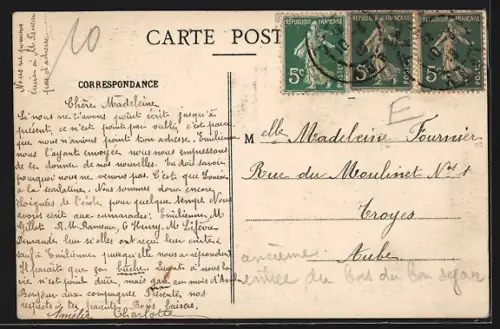 10
Nous ne pouvons
écrire à M
pas d'adresse.
CARTE POST
RÉPUBLIQUE FRANÇAISE
5c
POSTES
RÉPUBLIQUE FRANÇAISE
5c
POSTES
RÉPUBLIQUE FRANÇAISE
5c
POSTES
CORRESPONDANCE
Chère Madeleine.
Si nous ne t'avons point écrit jusqu'à
présent, ce n'est point par oubli, c'est parce
que nous n'avions point ton adresse. Emilienne
nous l'ayant envoyée, nous nous empressons
de te donner de nos nouvelles. Tu dois savoir
pourquoi nous ne venons pas. C'est que Louise
a la scarlatine. Nous sommes donc encore
éloignées de l'école pour quelque temps. Nous
avons écrit aux camarades: Emilienne, M
Gillot, R. M. Rameau, G Henry, M. Lefèvre.
Demande leur si elles ont reçu leur carte,
sauf à Emilienne puisqu'elle nous a répondu.
Il paraît que ton
n'est point dure, mais au mois d'
Bonjour aux compagnes. Présente nos
respects à tes parents. Bons baisers.
Amélie Charlotte
E
Melle Madeleine Fournier
Rue du Moulinet No 1
Troyes
Aube
ancienne
entrée du bas du